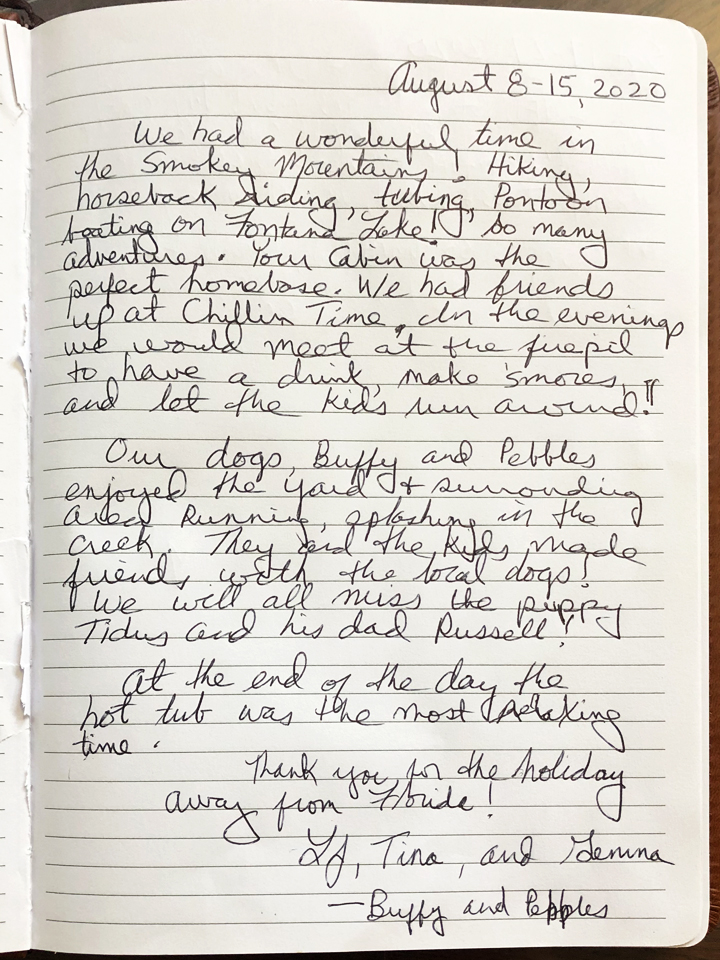 August 8-15, 2020
We had a wonderful time in
the Smokey Mountains! Hiking,
horseback riding, tubing, Pontoon
boating on Fontana Lake! So many
adventures. Your Cabin was the
perfect homebase. We had friends
up at Chillin Time. In the evenings
we would meet at the firepit
to have a drink, make smores,
and let the kids run around!!
Our dogs, Buffy and Pebbles
enjoyed the yard & surronding
area Running, splashing in the
creek. They and the kids made
friends with the local dogs!
We will all miss the puppy
Titus and his dad Russell!
At the end of the day the
hot tub was the most relaxing
time.
Thank you for the holiday
away from Florida!
LJ, Tina, and Gemma
—Buffy and Pebbles